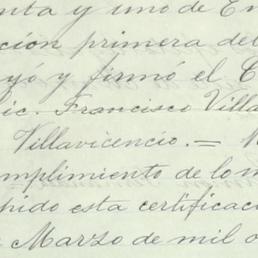 nta y uno de En
ción primera del
yó y firmó el C
ic. Francisco Villa
Villavicencio.=
mplimiento de lo m
pido esta certificac
Marzo de mil o